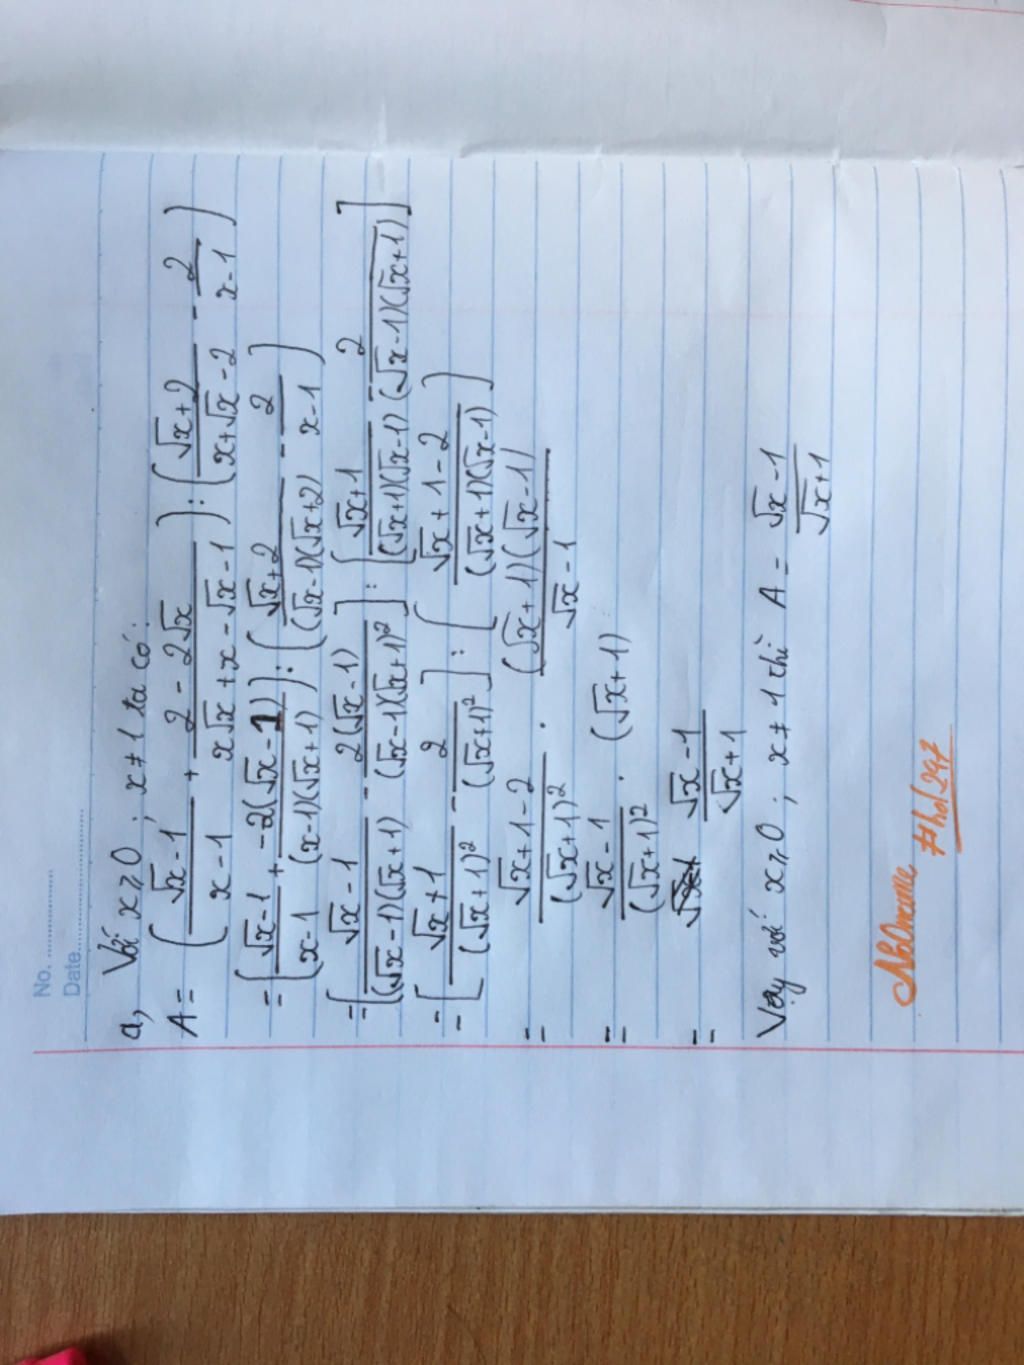 No. ....................
Date ....................
a, Với x ≥ 0 ; x ≠ 1 ta có:
A = ( (√x - 1)/(x - 1) + (2 - 2√x)/(x√x + x - √x - 1) ) : ( (√x + 2)/(x + √x - 2) - 2/(x - 1) )
= ( (√x - 1)/(x - 1) + (-2(√x - 1))/((x - 1)(√x + 1)) ) : ( (√x + 2)/((√x - 1)(√x + 2)) - 2/(x - 1) )
= [ (√x - 1)/((√x - 1)(√x + 1)) - 2(√x - 1)/((√x - 1)(√x + 1)²) ] : [ (√x + 1)/((√x + 1)(√x - 1)) - 2/((√x - 1)(√x + 1)) ]
= [ (√x + 1)/(√x + 1)² - 2/(√x + 1)² ] : ( (√x + 1 - 2)/((√x + 1)(√x - 1)) )
= (√x + 1 - 2)/(√x + 1)² . ((√x + 1)(√x - 1))/(√x - 1)
= (√x - 1)/(√x + 1)² . (√x + 1)
= (√x - 1)/(√x + 1)
Vậy với x ≥ 0 ; x ≠ 1 thì A = (√x - 1)/(√x + 1)
#hol247